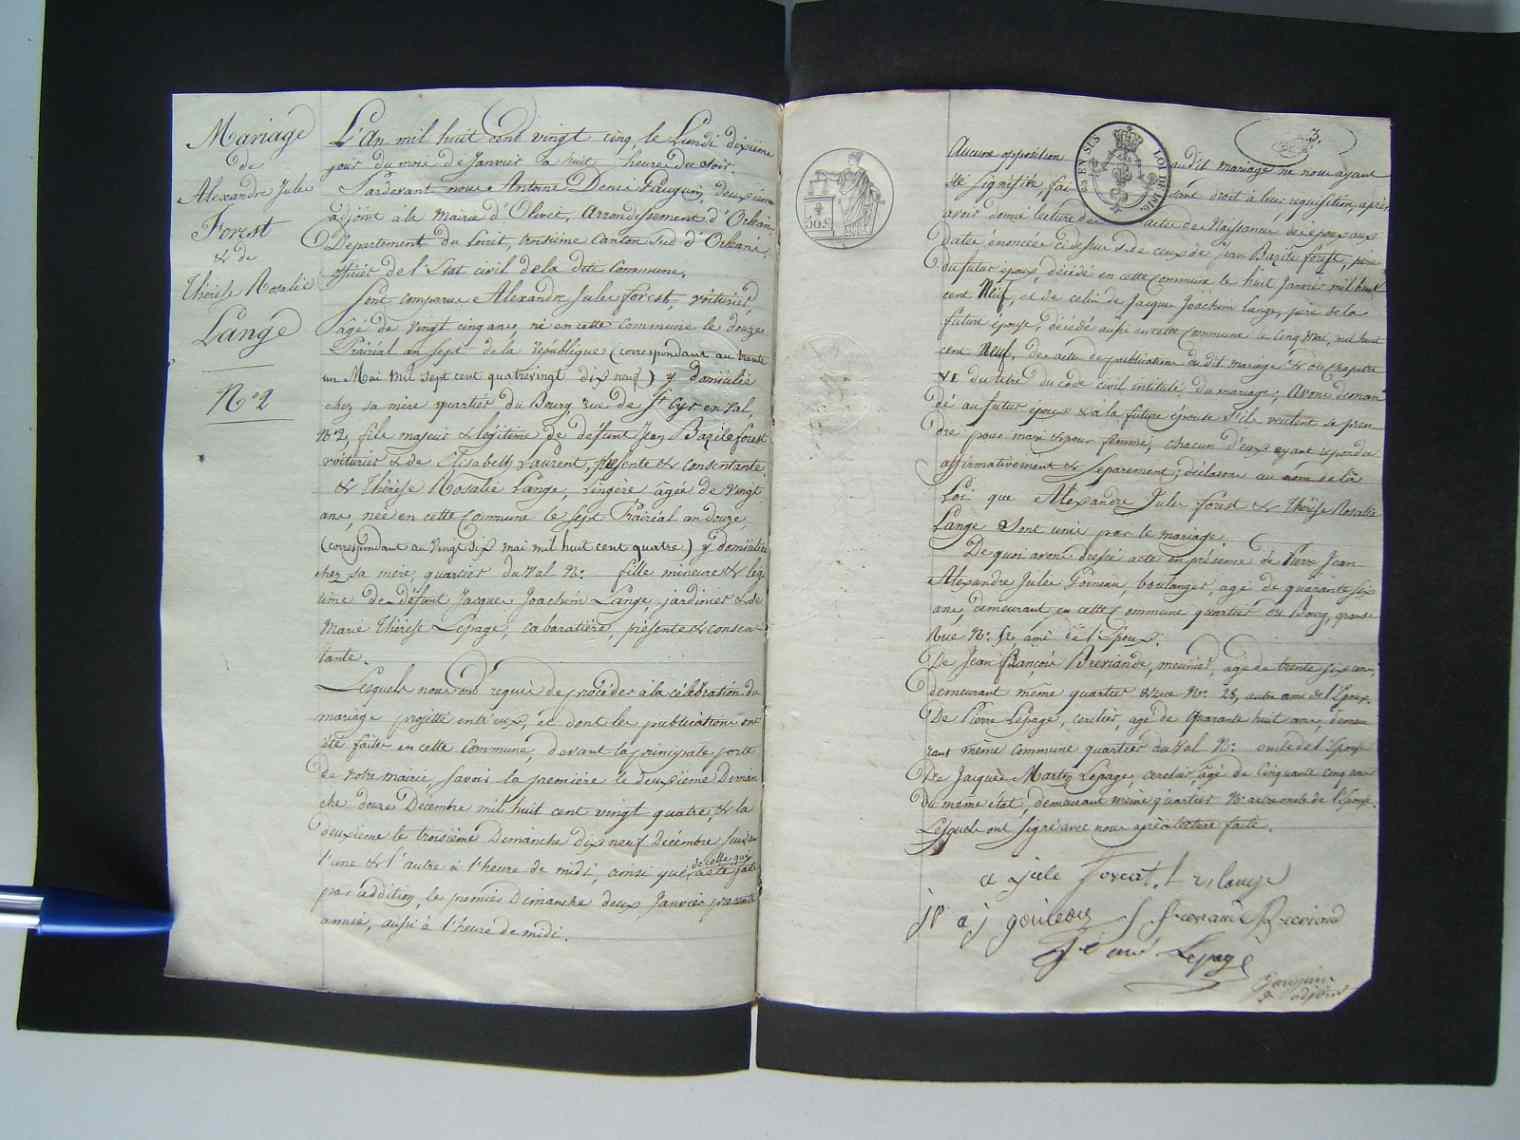 Mariage
de
Alexandre Jules
Forest
& de
Thérèse Rosalie
Lange
N° 2
L'An mil huit cent vingt cinq, le Lundi dixième
jour du mois de Janvier à huit heures du soir.
Pardevant nous Antoine Denis Pauquin, deuxième
adjoint à la mairie d'Olivet, Arrondissement d'Orléans,
Département du Loiret, troisième Canton Sud d'Orléans,
officier de l'Etat civil de la dite Commune.
Sont comparus Alexandre Jules forest, voiturier,
âgé de vingt cinq ans, né en cette commune le douze
Prairial an sept de la république (correspondant au trente
un Mai mil sept cent quatrevingt dix neuf) y domicilié
chez sa mère quartier du Bourg rue de St Cyr en val,
N° 2, fils majeur & légitime de défunt Jean Bazile forest
voiturier & de Elisabeth Laurent, présente & consentante.
& Thérèse Rosalie Lange, Lingère âgée de vingt
ans, née en cette Commune le sept Prairéal an douze
(correspondant au vingt six mai mil huit cent quatre) y domiciliée
chez sa mère, quartier du Val N°: fille mineure & légi
time de défunt Jacques Joachim Lange, jardinier & de
Marie Thérèse Lepage, cabaratière, présente & consen
tante.
Lesquels nous ont requis de procéder à la célébration du
mariage projetté entr'eux, et dont les publications ont
été faites en cette Commune, devant la principale porte
de notre mairie, savoir la première le deuxième Diman
che douze Décembre mil huit cent vingt quatre, & la
deuxième le troisième Dimanche dix neuf Décembre suivant
l'une & l'autre à l'heure de midi, ainsi que de celle qui a été faite
par addition, le premier Dimanche deux Janvier présente
année, aussi à l'heure de midi.
3.
EN SUS
LOI DE 1816
50c
Aucune opposition audit mariage ne nous ayant
été signifiée, faisant droit à leur requisition, après
avoir donné lecture des actes de Naissances des époux aux
Dates énoncées ci-dessus & de ceux de Jean Bazile forest, père
du futur époux, décédé en cette Commune le huit Janvier mil huit
cent Neuf, et de celui de Jacques Joachim Lange, père de la
future épouse, décédé aussi en cette Commune le cinq Mai, mil huit
cent Neuf, des actes de publications du dit mariage & du chapitre
VI du titre du code civil intitulé du mariage; Avons deman
dé au futur époux & à la future épouse s'ils veulent se pren
dre pour mari & pour femme; chacun d'eux ayant répondu
affirmativement & séparément; déclarons au nom de la
Loi que Alexandre Jules forest & Thérèse Rosalie
Lange sont unis par le mariage.
De quoi avons dressé acte en présence de Pierre Jean
Alexandre Jules Goineau, boulanger, agé de quarante six
ans, demeurant en cette Commune quartier du Bourg, grande
Rue N°: 52 ami de l'Epoux.
De Jean françois Breviande, meunier, agé de trente six ans,
demeurant même quartier & rue N°: 28, autre ami de l'Epoux.
De Pierre Lepage, cerclier, agé de Quarante huit ans, demeu
rant même commune quartier du Val N°: oncle de l'Epouse
De Jacques Martin Lepage, cerclier, âgé de Cinquante cinq ans
Du même état, demeurant même quartier N° autre oncle de l'Epouse.
Lesquels ont signé avec nous après lecture faite.
a jule Forest t r lange
j p a j goineau
Lepage
Pauquin
adjoint